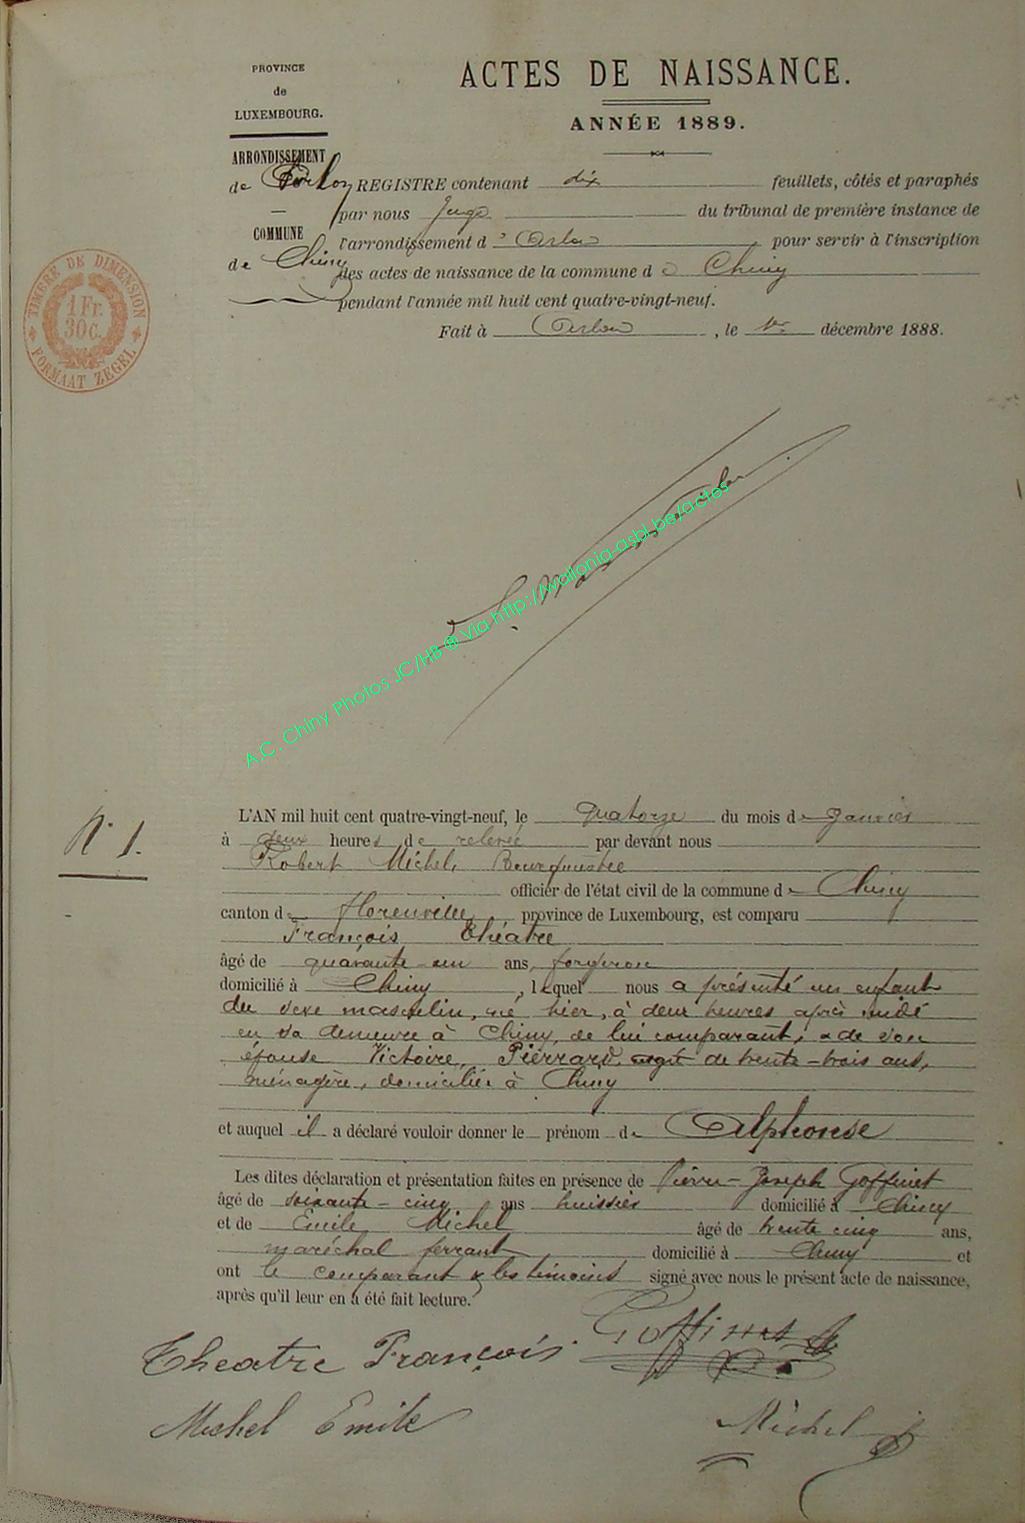 PROVINCE
de
LUXEMBOURG.
ACTES DE NAISSANCE.
ANNÉE 1889.
ARRONDISSEMENT
de Arlon
COMMUNE
de Chiny
REGISTRE contenant dix feuillets, côtés et paraphés
par nous Juge du tribunal de première instance de
l'arrondissement d' Arlon pour servir à l'inscription
des actes de naissance de la commune de Chiny
pendant l'année mil huit cent quatre-vingt-neuf.
Fait à Arlon, le 1er décembre 1888.
TIMBRE DE DIMENSION
1 Fr.
30c.
FORMAAT ZEGEL
A.C. Chiny Photos JC/HB @ Via http://wallonia-asbl.be/actes
N° 1.
L'AN mil huit cent quatre-vingt-neuf, le quatorze du mois de Janvier
à deux heures de relevée par devant nous
Robert Michel, Bourgmestre
officier de l'état civil de la commune de Chiny
canton de Florenville, province de Luxembourg, est comparu
François Théâtre
âgé de quarante un ans, forgeron
domicilié à Chiny, lequel nous a présenté un enfant
du sexe masculin, né hier, à deux heures après midi
en sa demeure à Chiny, de lui comparant, & de son
épouse Victoire, Pierrard, agée de trente-trois ans,
ménagère, domiciliée à Chiny
et auquel il a déclaré vouloir donner le prénom de Alphonse
Les dites déclaration et présentation faites en présence de Pierre-Joseph Goffinet
âgé de soixante-cinq ans huissier domicilié à Chiny
et de Emile Michel âgé de trente cinq ans,
maréchal ferrant domicilié à Chiny et
ont le comparant & les témoins signé avec nous le présent acte de naissance,
après qu'il leur en a été fait lecture.
Theatre François
Goffinet
Michel Emile
Michel